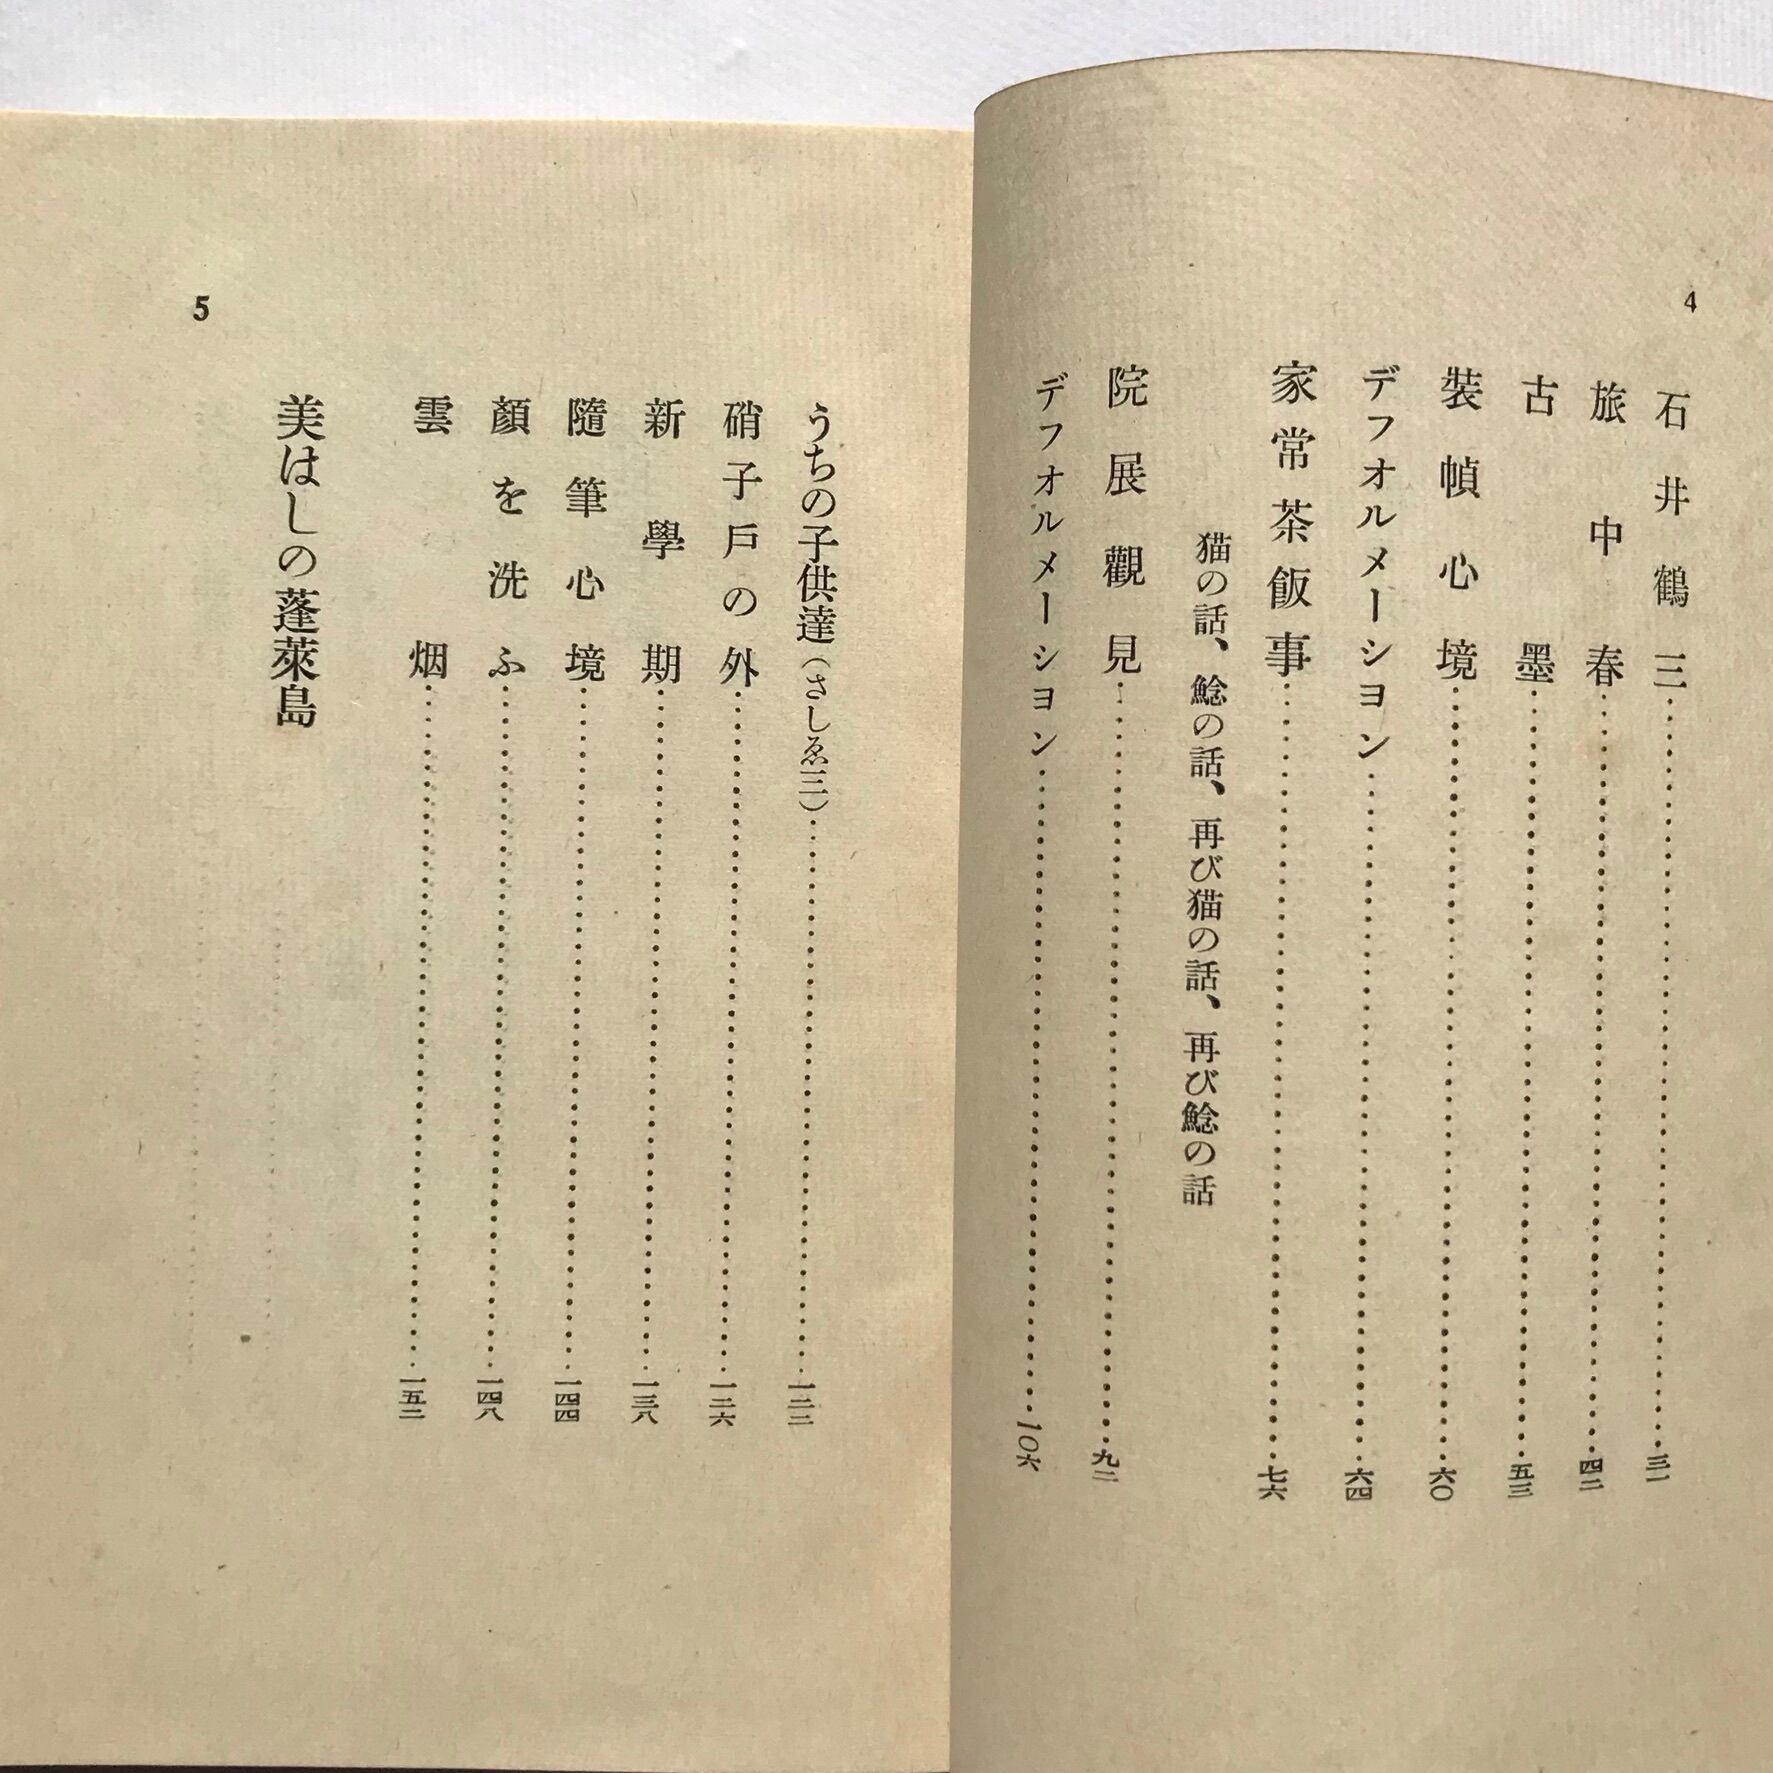 4
石井鶴三……三一
旅中春……四二
古墨……五三
裝幀心境……六〇
デフオルメーシヨン……六四
家常茶飯事……七六
猫の話、鯰の話、再び猫の話、再び鯰の話
院展觀見……九二
デフオルメーシヨン……一〇六
うちの子供達（さしゑ三）……一二二
硝子戸の外……一二六
新學期……一三八
隨筆心境……一四四
顏を洗ふ……一四八
雲烟……一五二
美はしの蓬萊島
5